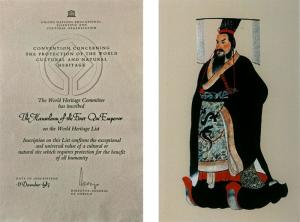 UNITED NATIONS EDUCATIONAL
SCIENTIFIC AND
CULTURAL ORGANIZATION
CONVENTION CONCERNING
THE PROTECTION OF THE WORLD
CULTURAL AND NATURAL
HERITAGE
The World Heritage Committee
has inscribed
The Mausoleum of the First Qin Emperor
on the World Heritage List
Inscription on this List confirms the exceptional
and universal value of a cultural or
natural site which requires protection for the benefit
of all humanity
DATE OF INSCRIPTION
11 December 1987
DIRECTOR-GENERAL
OF UNESCO